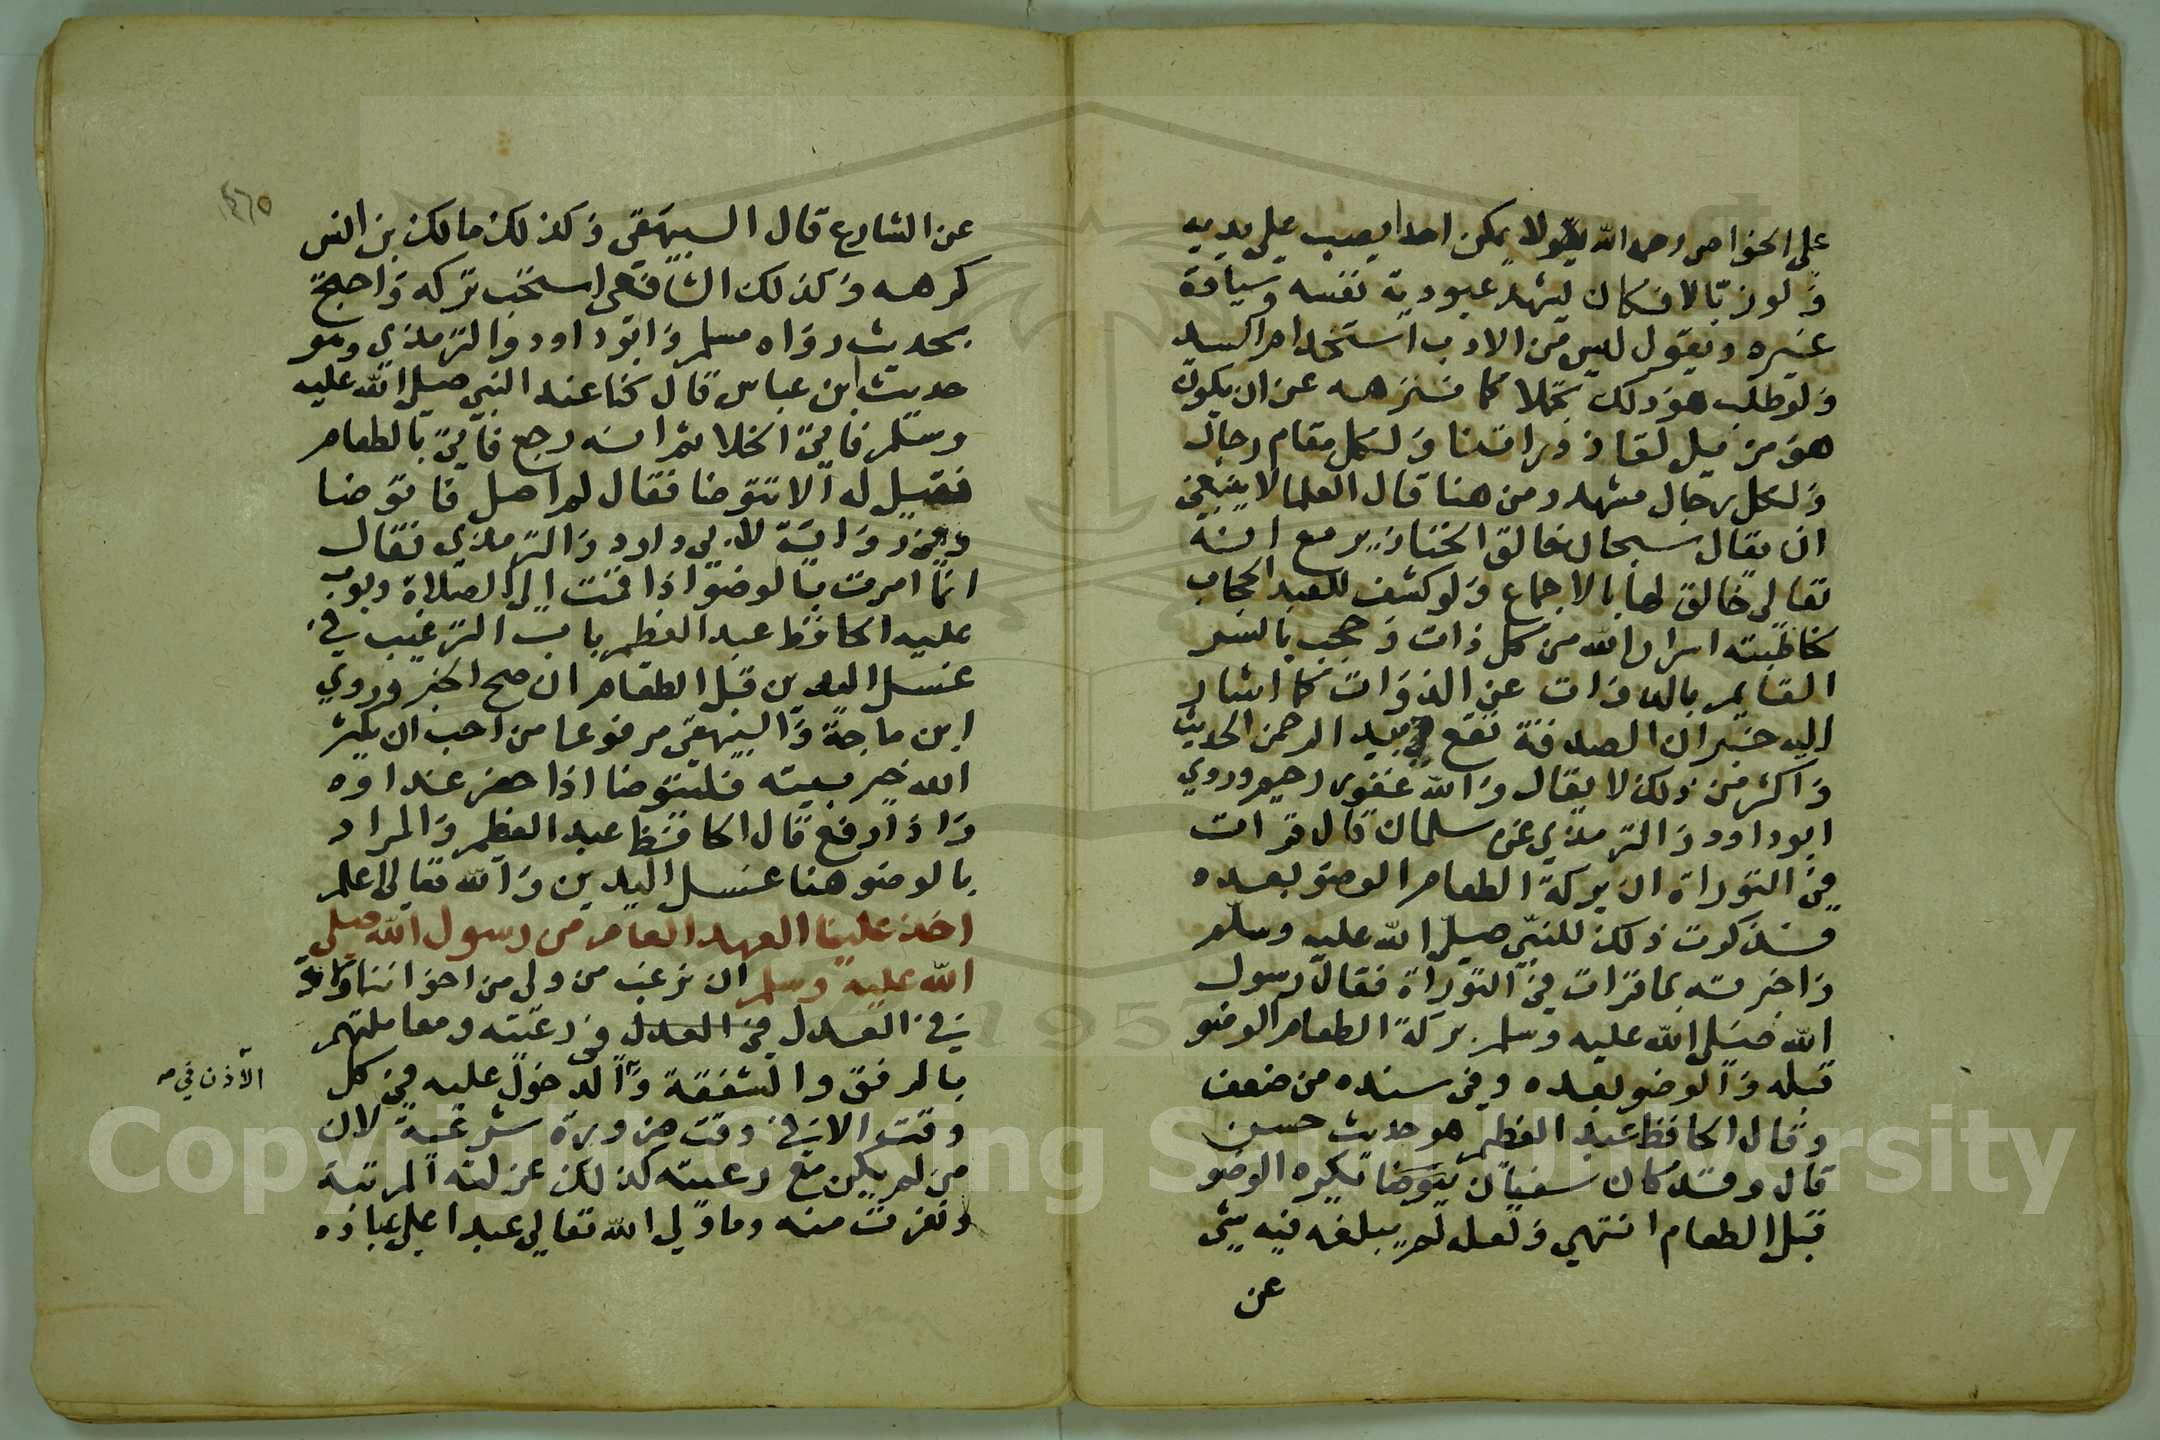 علي الخواص رحمه الله تعالي لا يمكن احدا يصب علي يديه
ولو زبالا فكان يشهد عبودية نفسه وسيادة
غيره ويقول ليس من الادب استخدام السيد
ولو طلب هو ذلك تجملا كما ننزهه عن ان يكون
هو من قبل
ولكل مقام رجال
ولكل رجال مشهد ومن هنا قال العلما لا ينبغي
ان يقال سبحان خالق الخنازير مع انه
تعالي خالق لها بالاجماع ولو كشف للعبد الحجاب
خاطبته اسرار الله من كل ذات وحجب بالسر
القايم بالذوات عن الذوات كما اشار
اليه خبر ان الصدقة تقع بيد الرحمن الحديث
واكثر من ذلك لا يقال والله غفور رحيم وروي
ابو داود والترمذي عن سلمان قال قرات
في التوراة ان بركة الطعام الوضو بعده
فذكرت ذلك للنبي صلي الله عليه وسلم
واخبرته بما قرات في التوراة فقال رسول
الله صلي الله عليه وسلم بركة الطعام الوضو
قبله والوضو بعده وفي سنده من ضعف
وقال الحافظ عبد العظيم هو حديث حسن
قال وقد كان سفيان يكره الوضو
قبل الطعام انتهي ولعله لم يبلغه فيه شي
عن
٤٦٥
عن الشارع قال البيهقي وكذلك مالك بن انس
كرهه وكذلك الشافعي استحب تركه واحتج
بحديث رواه مسلم وابو داود والترمذي وهو
حديث ابن عباس قال كنا عند النبي صلي الله عليه
وسلم فاتي الخلا ثم انه رجع فاتي بالطعام
فقيل له الا تتوضا فقال لم اصل فاتوضا
وفي رواية لابي داود والترمذي فقال
انما امرت بالوضو اذا قمت الي الصلاة وبوب
عليه الحافظ عبد العظيم باب الترغيب في
غسل اليدين قبل الطعام ان صح الخبر وروي
ابن ماجة والبيهقي مرفوعا من احب ان يكثر
الله خير بيته فليتوضا اذا حضر غداوه
واذا رفع قال الحافظ عبد العظيم والمراد
بالوضو هنا غسل اليدين والله تعالي اعلم
اخذ علينا العهد العام من رسول الله صلي
الله عليه وسلم ان نرغب من ولي من اخواننا ولاية
في العدل في العدل في رعيته ومعاملتهم
بالرفق والشفقة والدخول عليه في كل
الاذن في صـ
وقت الا في وقت ضرورة شرعية لان
من لم يكن مع رعيته كذلك عزلته المرتبة
ونفرت منه وما ولي الله تعالي عبدا علي عباده